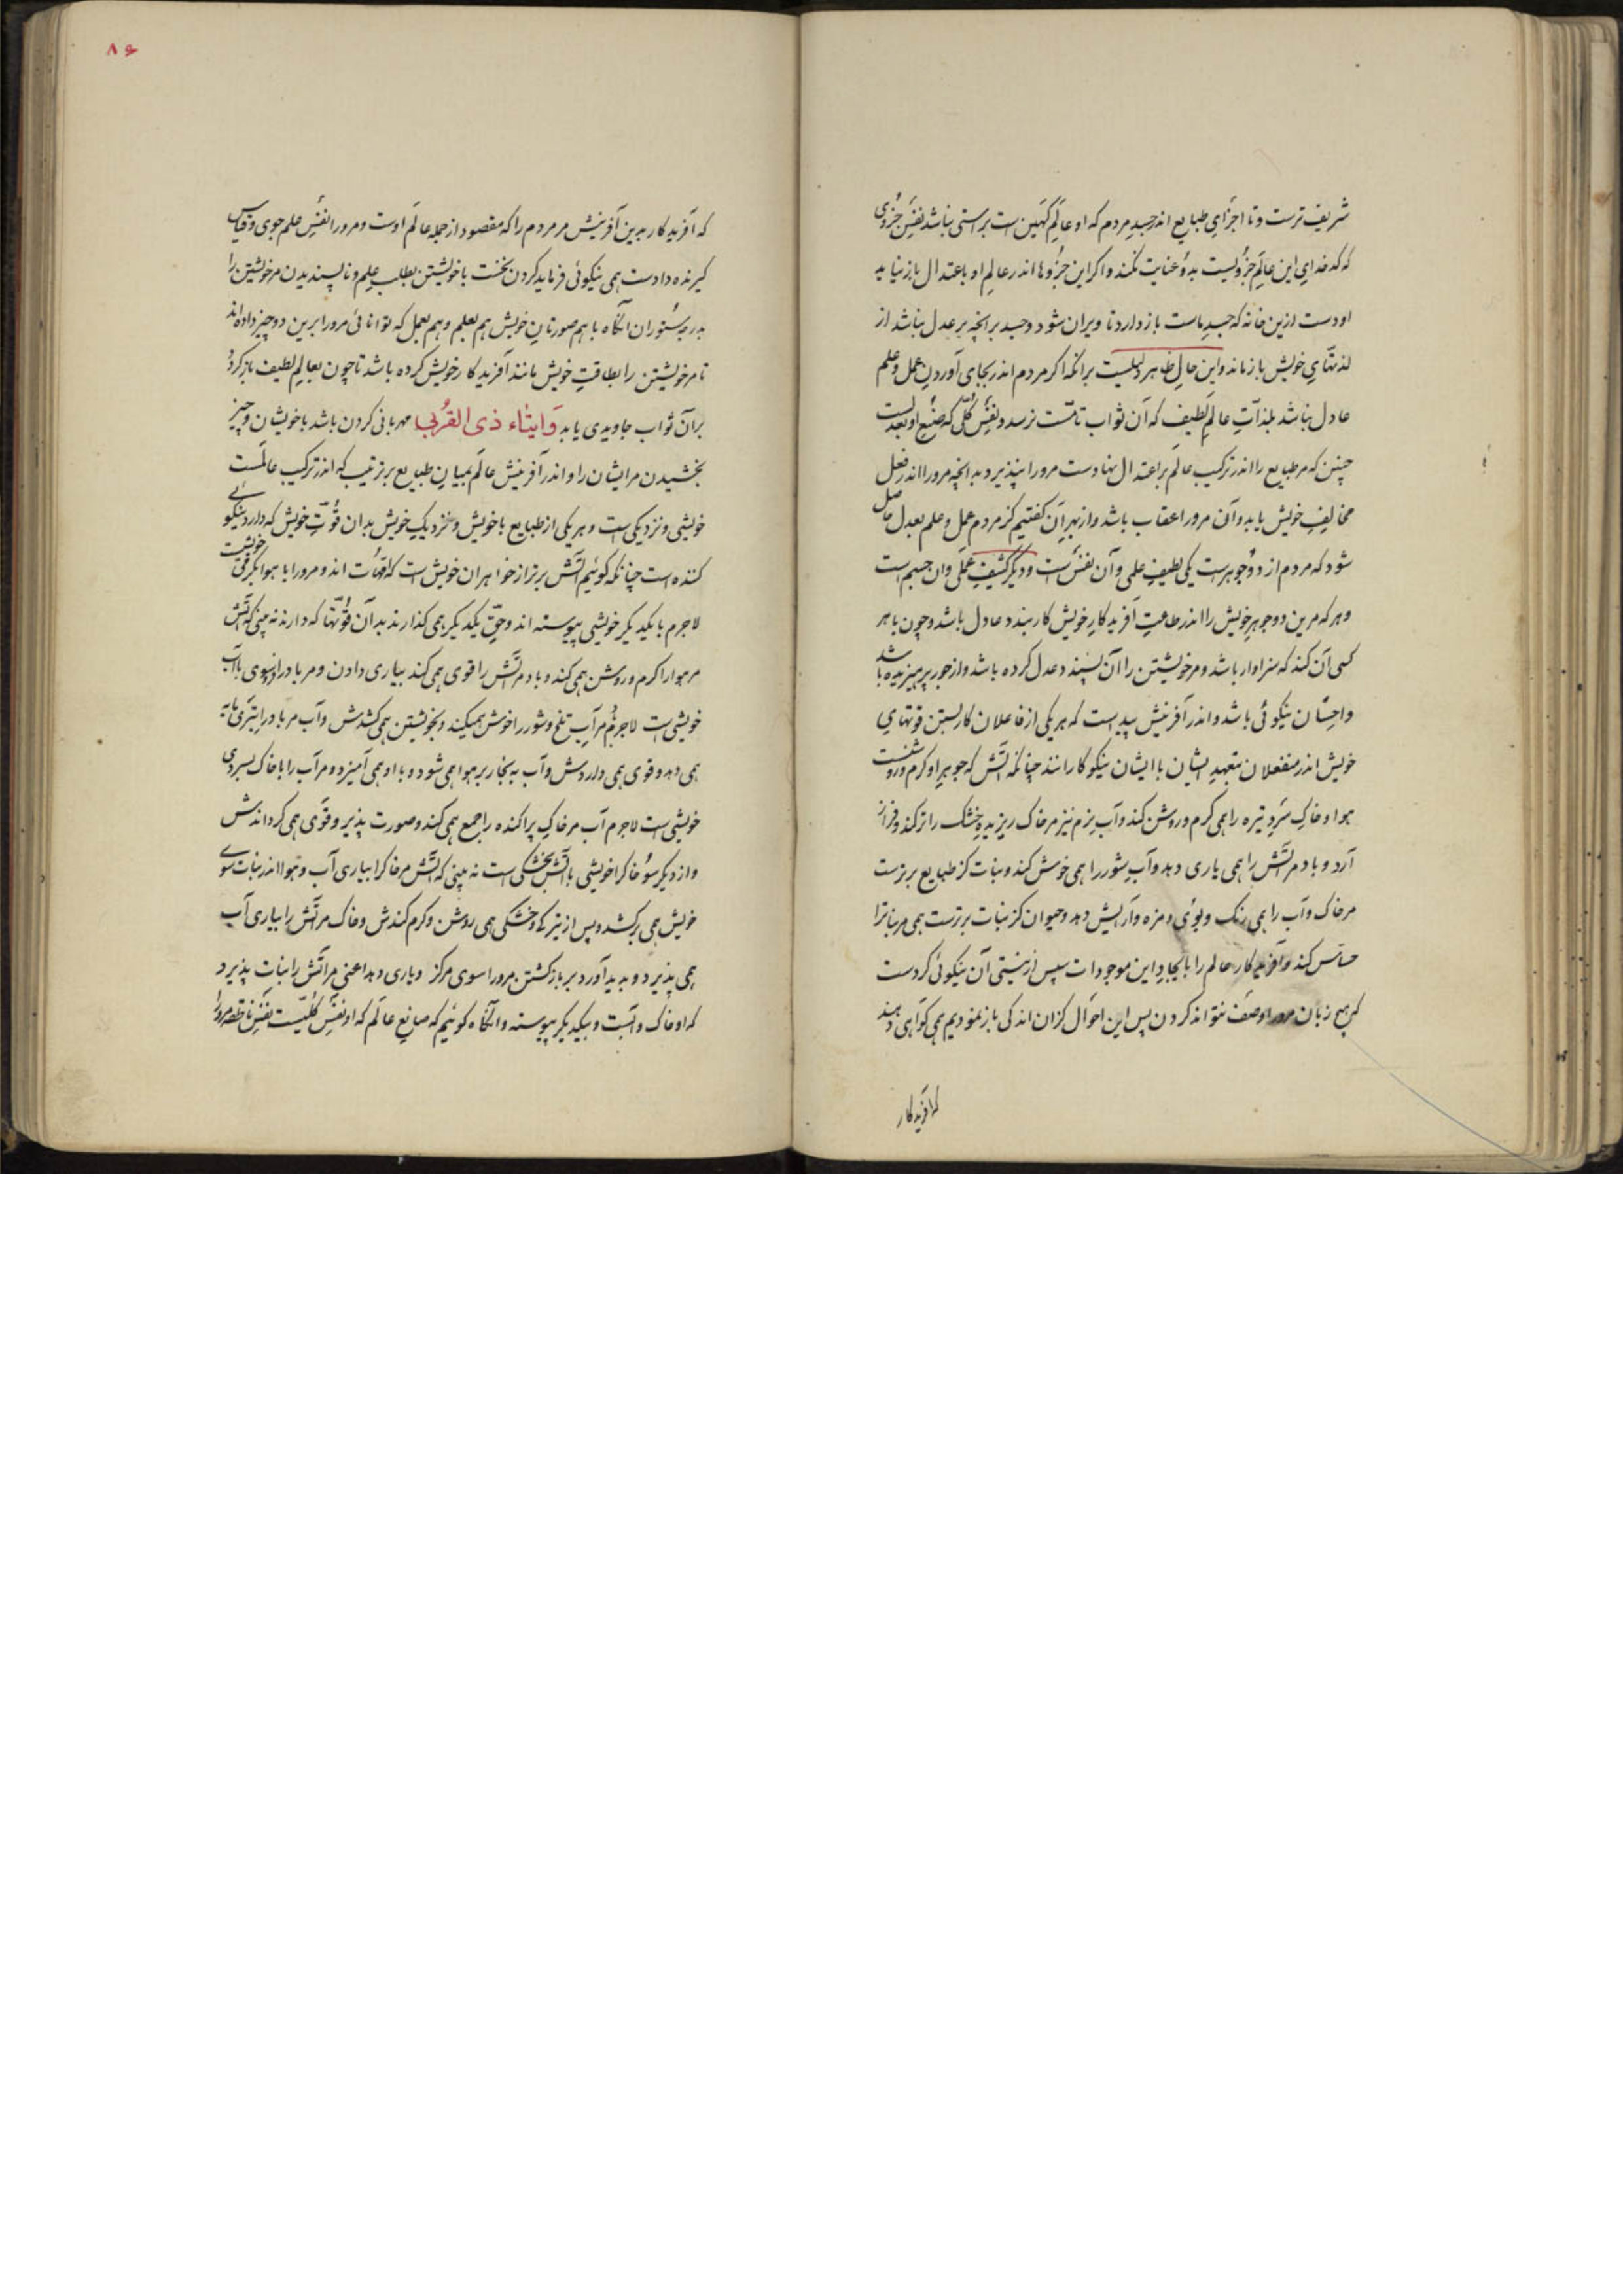 شریف ترست و تا اجزای طبایع اندر جسد مردم که او عالم کهین است براستی نباشد نفس جزوی
که کدخدای این عالم جزویست بدو عنایت نکند و اگر این جزوها اندر عالم او باعتدال باز نیاید
او دست ازین خانه که جسد ماست باز دارد تا ویران شود و جسد بر انچه بر عدل نباشد از
لذتهای خویش باز ماند و این حال ظاهر دلیلست برانکه اکر مردم اندر بجای آوردن عمل و علم
عادل نباشد بلذات عالم لطیف که آن ثواب تامست نرسد و نفس کلی که صنع او بعدلست
چنین که مر طبایع را اندر ترکیب عالم بر اعتدال نهادست مرو را نپذیرد بدانچه مرو را اندر فعل
مخالف خویش یابد و آن مرو را عقاب باشد و از بهر آن کفتیم کز مردم عمل و علم بعدل حاصل
شود که مردم از دو جوهر است یکی لطیف علمی و آن نفس است و دیگر کثیف عملی و ان جسم است
و هر که مرین دو جوهر خویش را اندر طاعت آفریدکار خویش کار بندد عادل باشد و چون با هر
کسی آن کند که سزاوار باشد و مر خویشتن را آن پسندد عدل کرده باشد و از جور پرهیزیده باشد
و احسان نیکوئی باشد و اندر آفرینش پیداست که هر یکی از فاعلان کار بستن قوتهای
خویش اندر منفعلان بتعهد ایشان با ایشان نیکو کارانند چنانکه آتش که جوهر او کرم و روشنست
هوا و خاک سرد تیره را همی کرم و روشن کند و آب نرم نیز مر خاک ریزیده خشک را تر کند و فراز
آرد و باد مر آتش را همی یاری دهد و آب شور را همی خوش کند و نبات کز طبایع برترست
مر خاک و آب را همی رنک و بوی و مزه و آرایش دهد و حیوان کز نبات برترست همی مر نباترا
حساس کند و آفریدکار عالم را بایجاد این موجودات سپس از نیستی آن نیکوئی کردست
که هیچ زبان مرو را وصف نتواند کردن پس این احوال کزان اندکی باز نمودیم همی کواهی دهند
که آفریدکار
۸۶
که آفریدکار بدین آفرینش مر مردم را که مقصود از جمله عالم اوست و مرو را نفس علم جوی و قیاس
کیرنده دادست همی نیکوئی فرماید کردن نخست با خویشتن بطلب علم و ناپسندیدن مر خویشتن را
بدرجه ستوران انکاه با هم صورتان خویش هم بعلم و هم بعمل که توانائی مرو را برین دو چیز داده اند
تا مر خویشتن را بطاقت خویش مانند آفریدکار خویش کرده باشد تا چون بعالم لطیف باز کردد
بر آن ثواب جاویدی یابد وَایتاء ذی القُربی مهربانی کردن باشد با خویشان و چیز
بخشیدن مر ایشان را و اندر آفرینش عالم بمیان طبایع بر ترتیب که اندر ترکیب عالمست
خویشی و نزدیکی است و هر یکی از طبایع با خویش و نزدیک خویش بدان قوت خویش که دارد نیکوئی
کننده است چنانکه کوئیم آتش برتر از خواهران خویش است که امهات اند و مرو را با هوا بکرمی خویشیست
لاجرم با یکدیکر خویشی پیوسته اند و حق یکدیکر همی کذارند بدان قوتها که دارند نه بینی که آتش
مر هوا را کرم و روشن همی کند و باد مر آتش را قوی همی کند بیاری دادن و مر باد را از سوی با آب
خویشی است لاجرم مر آب تلخ و شور را خوش همیکند و بخویشتن همی کشدش و آب مر باد را بتری مایه
همی دهد و قوی همی داردش و آب به بخار بر هوا همی شود و با او همی آمیزد و مر آب را با خاک بسردی
خویشی است لاجرم آب مر خاک پراکنده را جمع همی کند و صورت پذیر و قوی همی کرداندش
و از دیکر سو خاکرا خویشی با آتش بخشکی است نه بینی که آتش مر خاکرا بیاری آب و هوا اندر نبات سوی
خویش همی برکشد و پس از تیرکی و خشکی همی روشن و کرم کندش و خاک مر آتش را بیاری آب
همی پذیرد و بدید آورد بر باز کشتن مرو را سوی مرکز و یاری دهد اعنی مر آتش را نبات پذیرد
که او خاک و آبست و بیکدیکر پیوسته و انکاه کوئیم که صانع عالم که او نفس کلیست نفس ناطقه مرو را